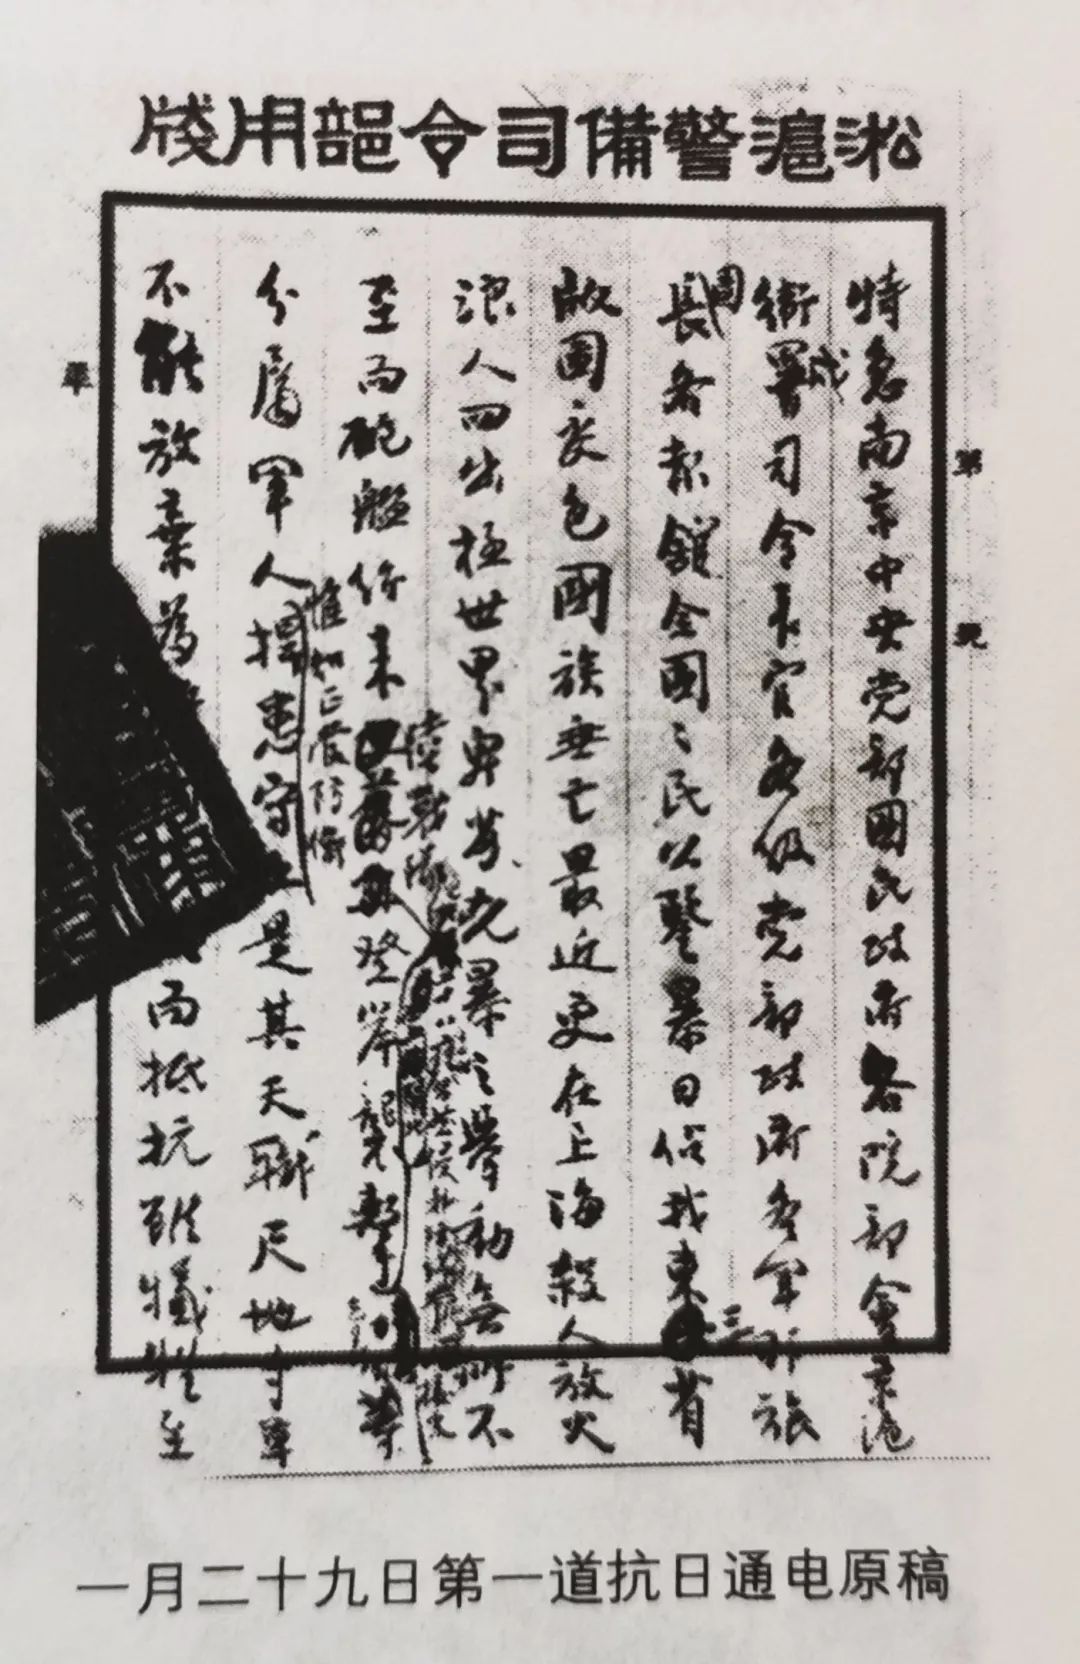 淞滬警備司令部用牋
特急南京中央党部國民政府各院部會京滬
衛戍署司令長官各级党部政府各軍師旅
團長各報館全國々民公鑒暴日佔我東三省
版圖変色國族垂亡最近更在上海殺人放火
浪人四出極世界卑劣凶暴之舉動無所不
至而砲艦紛来
登岸襲擊
陸戰隊
分屬軍人惟知正當防衛
捍患守土是其天職尺地寸草
不能放棄為
而抵抗雖犧牲至
第
號
一月二十九日第一道抗日通电原稿